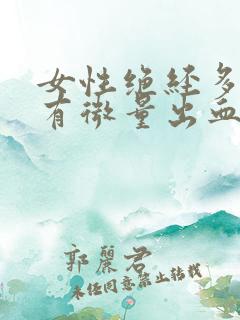 女性绝经多
有微量出血
郭麗君
未经同意禁止转载